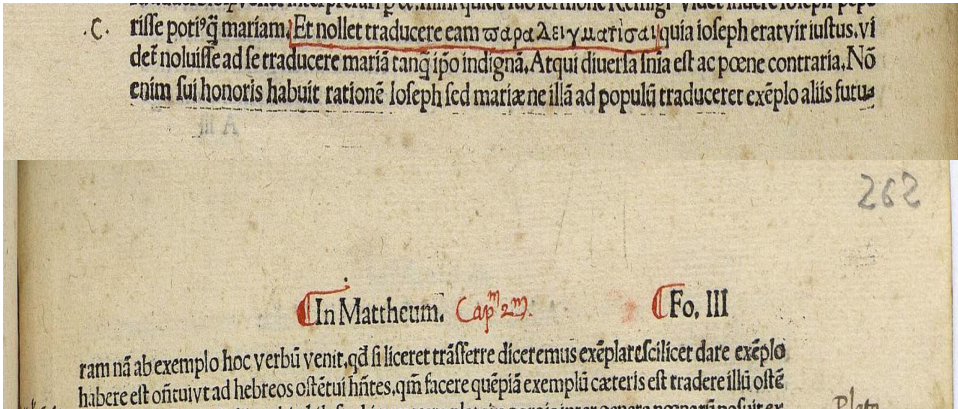 .C. risse potiꝰq̃ mariam. Et nollet traducere eam παραδειγματίσαι quia ioseph erat vir iustus. vi
det̃ noluisse ad se traducere mariã tanq̃ ip̃o indignã. Atqui diuersa s̃nia est ac pœne contraria. Nõ
enim sui honoris habuit rationẽ Ioseph sed mariæ ne illã ad populũ traduceret exẽplo aliis futu-
262
In Mattheum. Capᵐ 2ᵐ. Fo. III
ram nã ab exemplo hoc verbũ venit, qd̃ si liceret trãsferre diceremus exẽplare scilicet dare exẽplo
habere est oñtui vt ad hebreos ostẽtui hñtes, qm̃ facere quẽpiã exemplũ cæteris est tradere illũ ostẽ
Plato